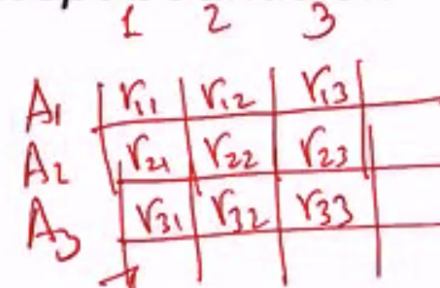 1 2 3
A₁ r₁₁ r₁₂ r₁₃
A₂ r₂₁ r₂₂ r₂₃
A₃ r₃₁ r₃₂ r₃₃